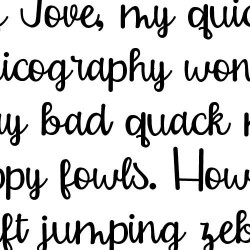 Jove, my quic
icography won
ay bad quack
ppy fowls. How
ft jumping zeb